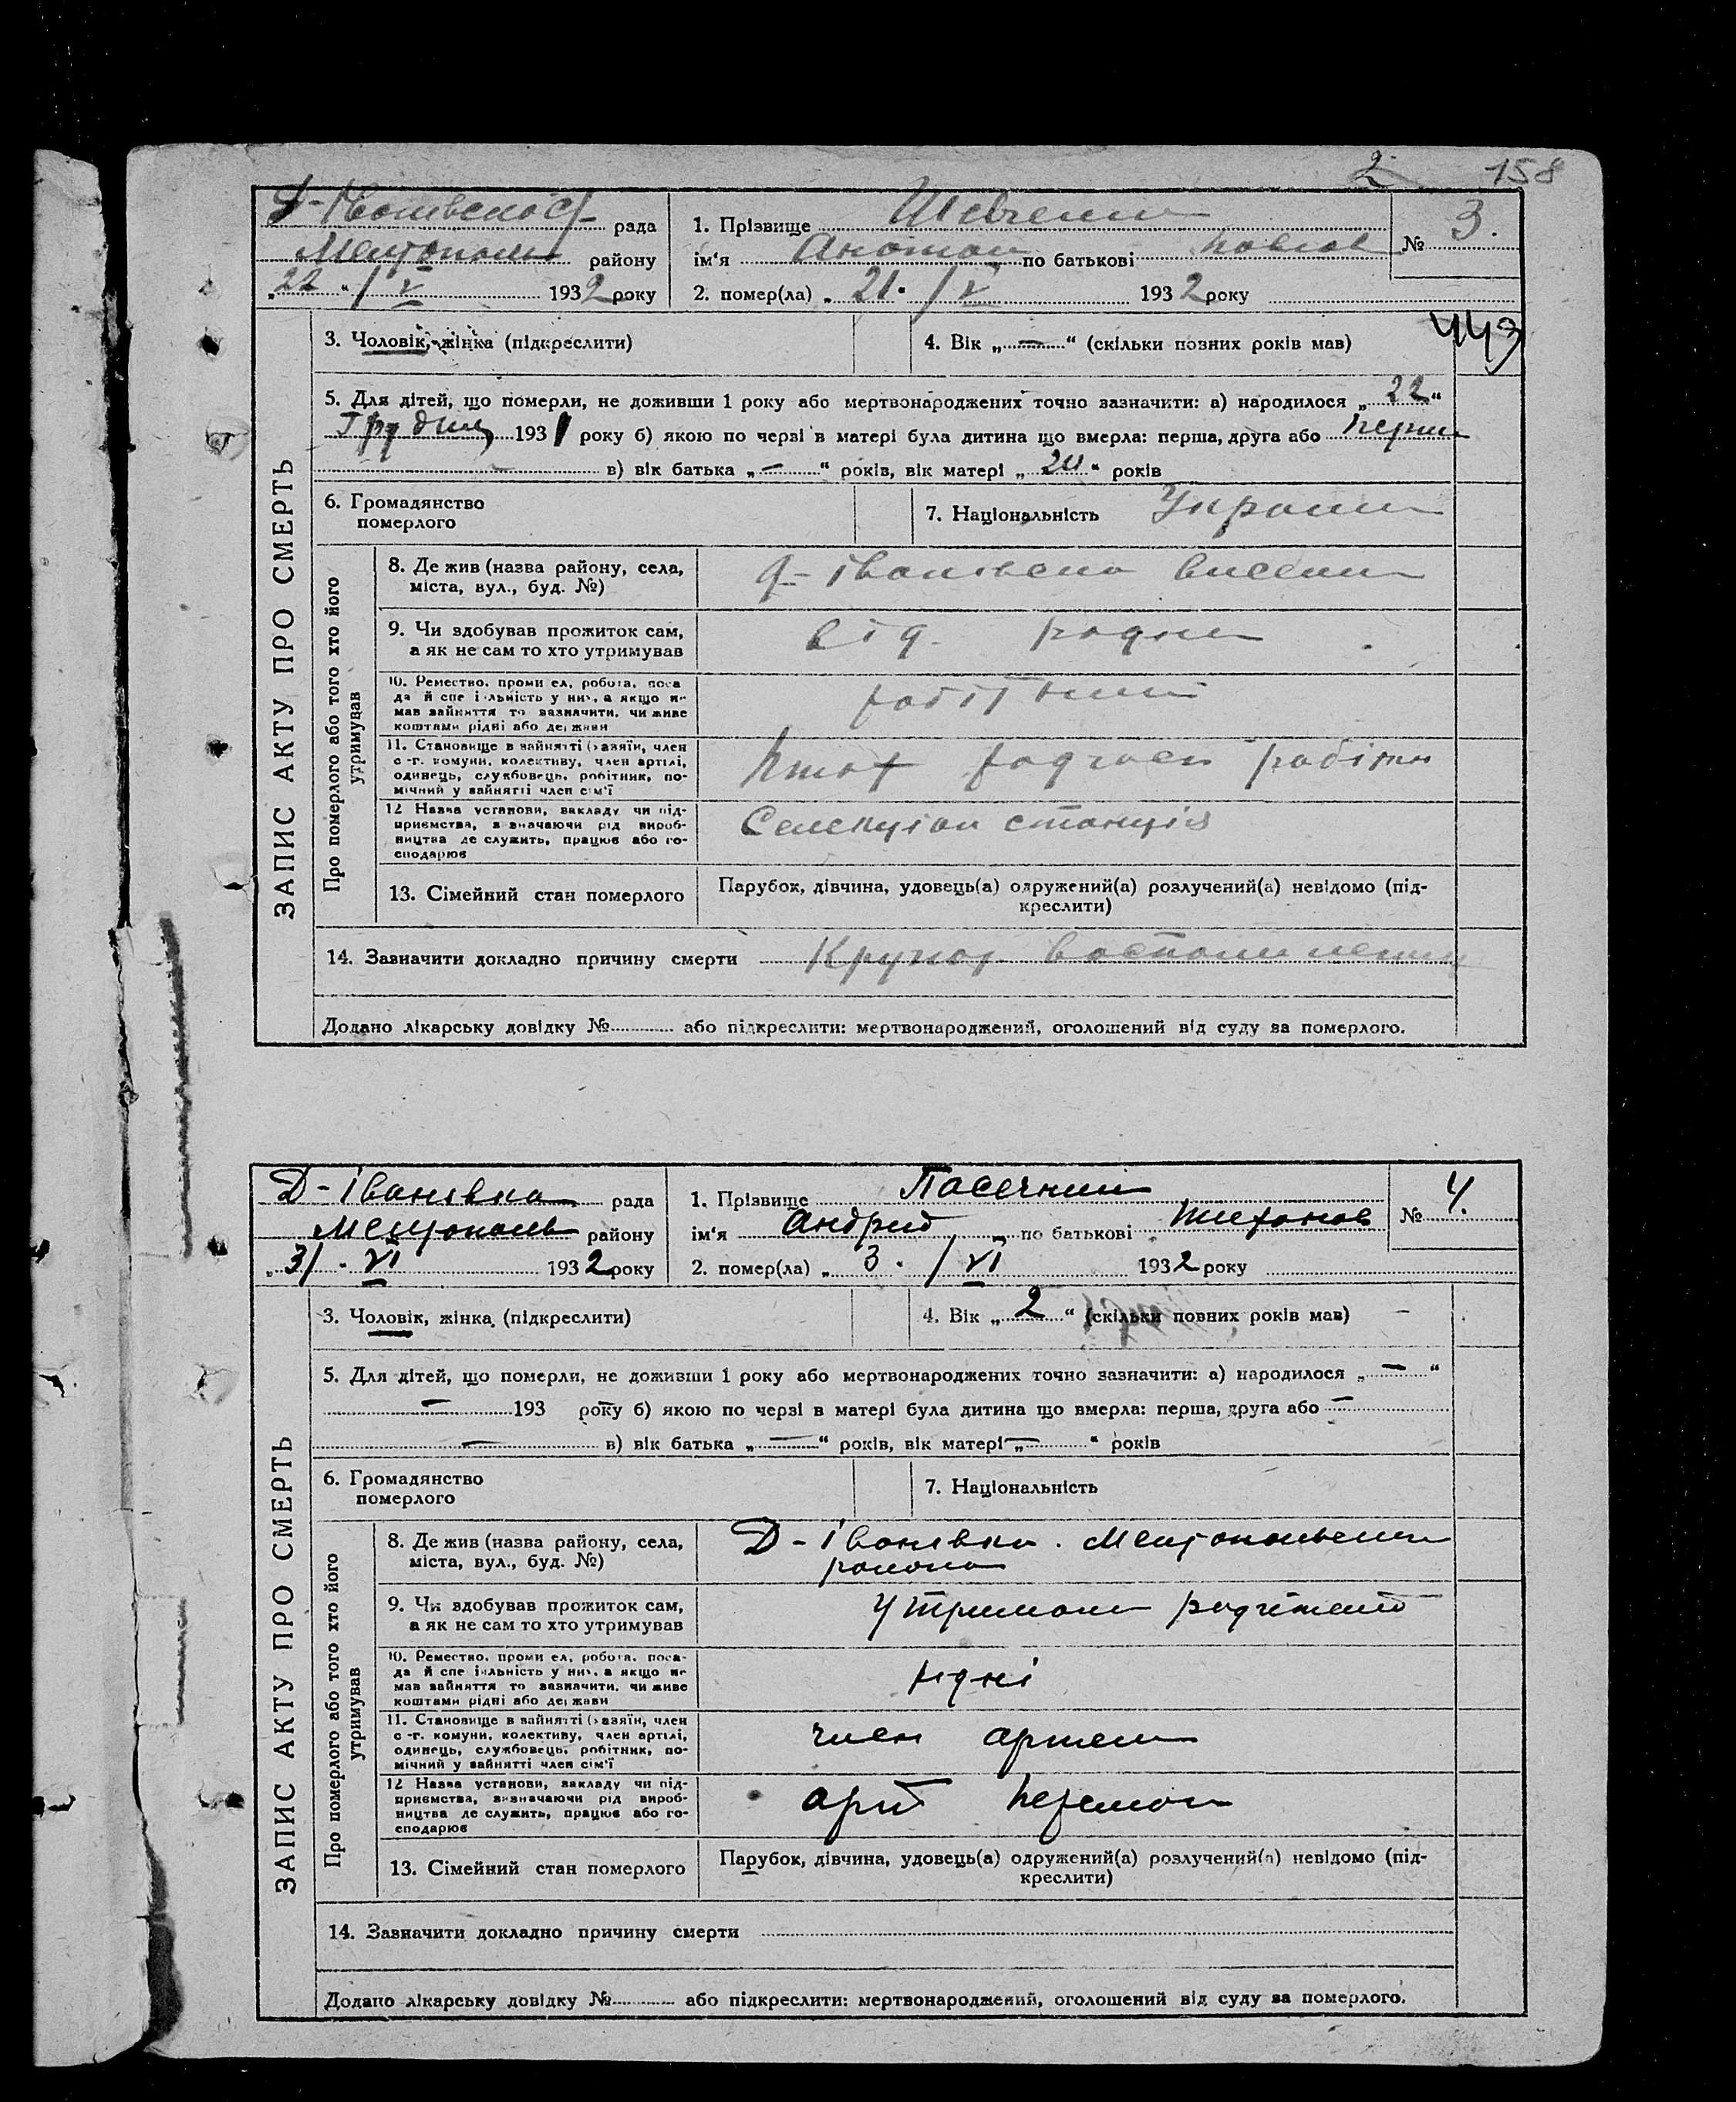 2 158
Д-Іванівської рада
Мелітополь району
„22“ / V 1932 року
1. Прізвище Шевченко
ім‘я по батькові Павлов
№ 3.
2. помер(ла) „21“ / V 1932 року
443
ЗАПИС АКТУ ПРО СМЕРТЬ
3. Чоловік, жінка (підкреслити)
4. Вік „—“ (скільки повних років мав)
5. Для дітей, що померли, не доживши 1 року або мертвонароджених точно зазначити: а) народилося „22“
Грудня 1931 року б) якою по черзі в матері була дитина що вмерла: перша, друга або перша
— в) вік батька „—“ років, вік матері „20“ років
6. Громадянство
померлого
7. Національність Украин
Про померлого або того хто його
утримував
8. Де жив (назва району, села,
міста, вул., буд. №)
Д-Іванівка
9. Чи здобував прожиток сам,
а як не сам то хто утримував
від
10. Ремество, промисел, робота, поса
да й спеціяльність у них, а якщо не
мав зайняття то зазначити, чи живе
коштами рідні або держави
робітник
11. Становище в зайнятті (хазяїн, член
с.-г. комуни, колективу, член артілі,
одинець, службовець, робітник, по-
мічний у зайнятті член сім‘ї
робітн
12 Назва установи, закладу чи під-
приємства, зазначаючи рід вироб-
ництва де служить, працює або го-
сподарює
Селекціон станція
13. Сімейний стан померлого
Парубок, дівчина, удовець(а) одружений(а) розлучений(а) невідомо (під-
креслити)
14. Зазначити докладно причину смерти Крупоз
Додано лікарську довідку № або підкреслити: мертвонароджений, оголошений від суду за померлого.
Д-Іванівка рада
Мелітополь району
„3/ . VI 1932 року
1. Прізвище Пасечний
ім‘я Андрій по батькові
№ 4.
2. помер(ла) „3. / VI 1932 року
ЗАПИС АКТУ ПРО СМЕРТЬ
3. Чоловік, жінка (підкреслити)
4. Вік „2“ (скільки повних років мав) —
5. Для дітей, що померли, не доживши 1 року або мертвонароджених точно зазначити: а) народилося „—“
— 193 року б) якою по черзі в матері була дитина що вмерла: перша, друга або —
— в) вік батька „—“ років, вік матері „—“ років
6. Громадянство
померлого
7. Національність
Про померлого або того хто його
утримував
8. Де жив (назва району, села,
міста, вул., буд. №)
Д-Іванівка. Мелітопольський
района
9. Чи здобував прожиток сам,
а як не сам то хто утримував
Утриман родителей
10. Ремество, промисел, робота, поса-
да й спеціяльність у них, а якщо не
мав зайняття то зазначити, чи живе
коштами рідні або держави
рідні
11. Становище в зайнятті (хазяїн, член
с.-г. комуни, колективу, член артілі,
одинець, службовець, робітник, по-
мічний у зайнятті член сім‘ї
член артели
12 Назва установи, закладу чи під-
приємства, зазначаючи рід вироб-
ництва де служить, працює або го-
сподарює
арт Перемога
13. Сімейний стан померлого
Парубок, дівчина, удовець(а) одружений(а) розлучений(а) невідомо (під-
креслити)
14. Зазначити докладно причину смерти
Додано лікарську довідку № або підкреслити: мертвонароджений, оголошений від суду за померлого.